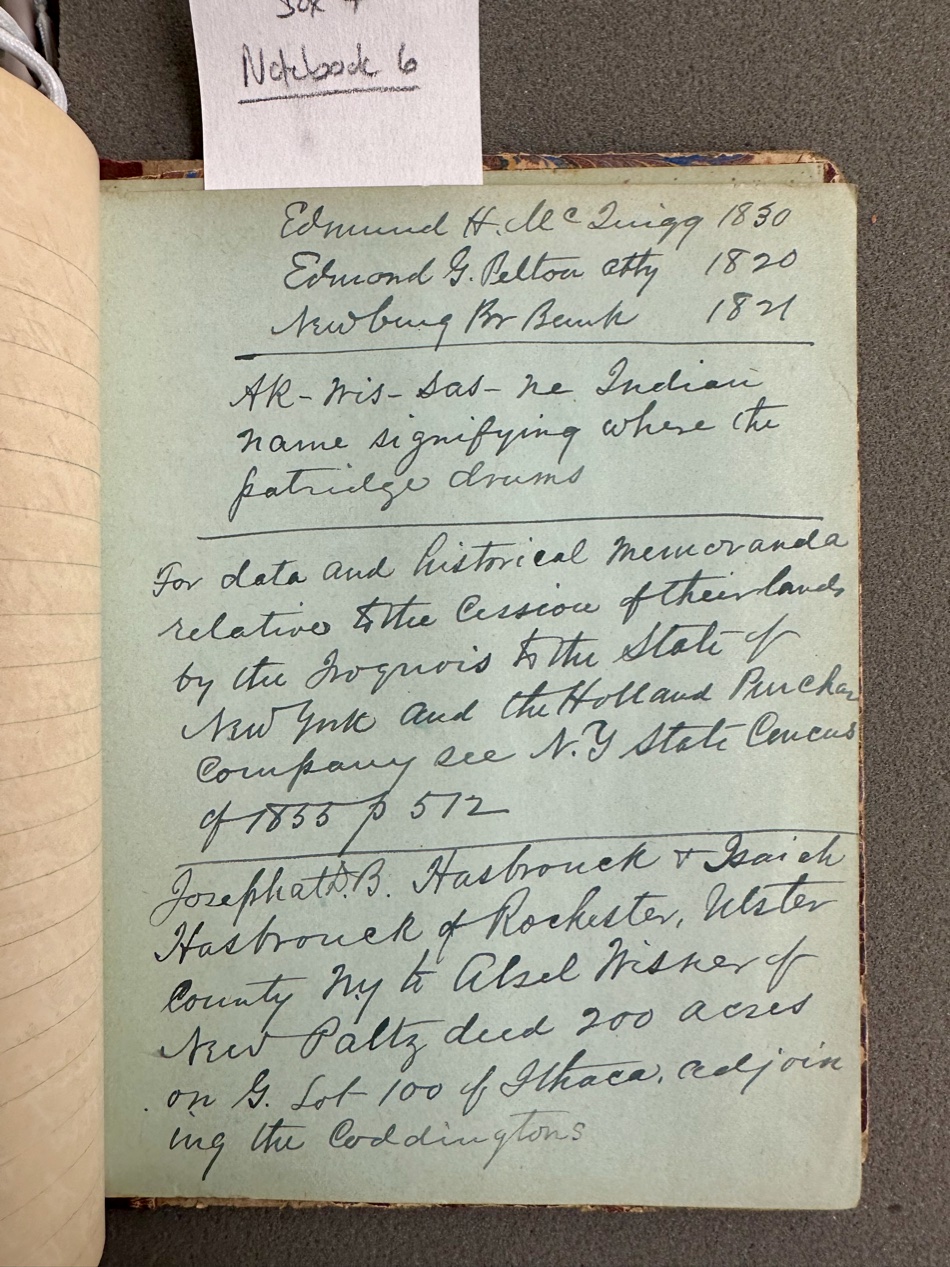 Box 4
Notebook 6
Edmund H. Mc Quigg 1830
Edmond G. Pelton atty 1820
Newburg Br Bank 1821
AK-wis-sas-ne Indian
name signifying where the
patridge drums
For data and historical memoranda
relative to the Cession of their lands
by the Iroquois to the State of
New York and the Holland Purchas
Company see N.Y State Cencus
of 1855 p 512
Josephat D.B. Hasbrouck & Isaiah
Hasbrouck of Rochester, Ulster
County N.y to Absel Wisner of
New Paltz deed 200 acres
on G. Lot 100 of Ithaca. adjoin
ing the Coddingtons